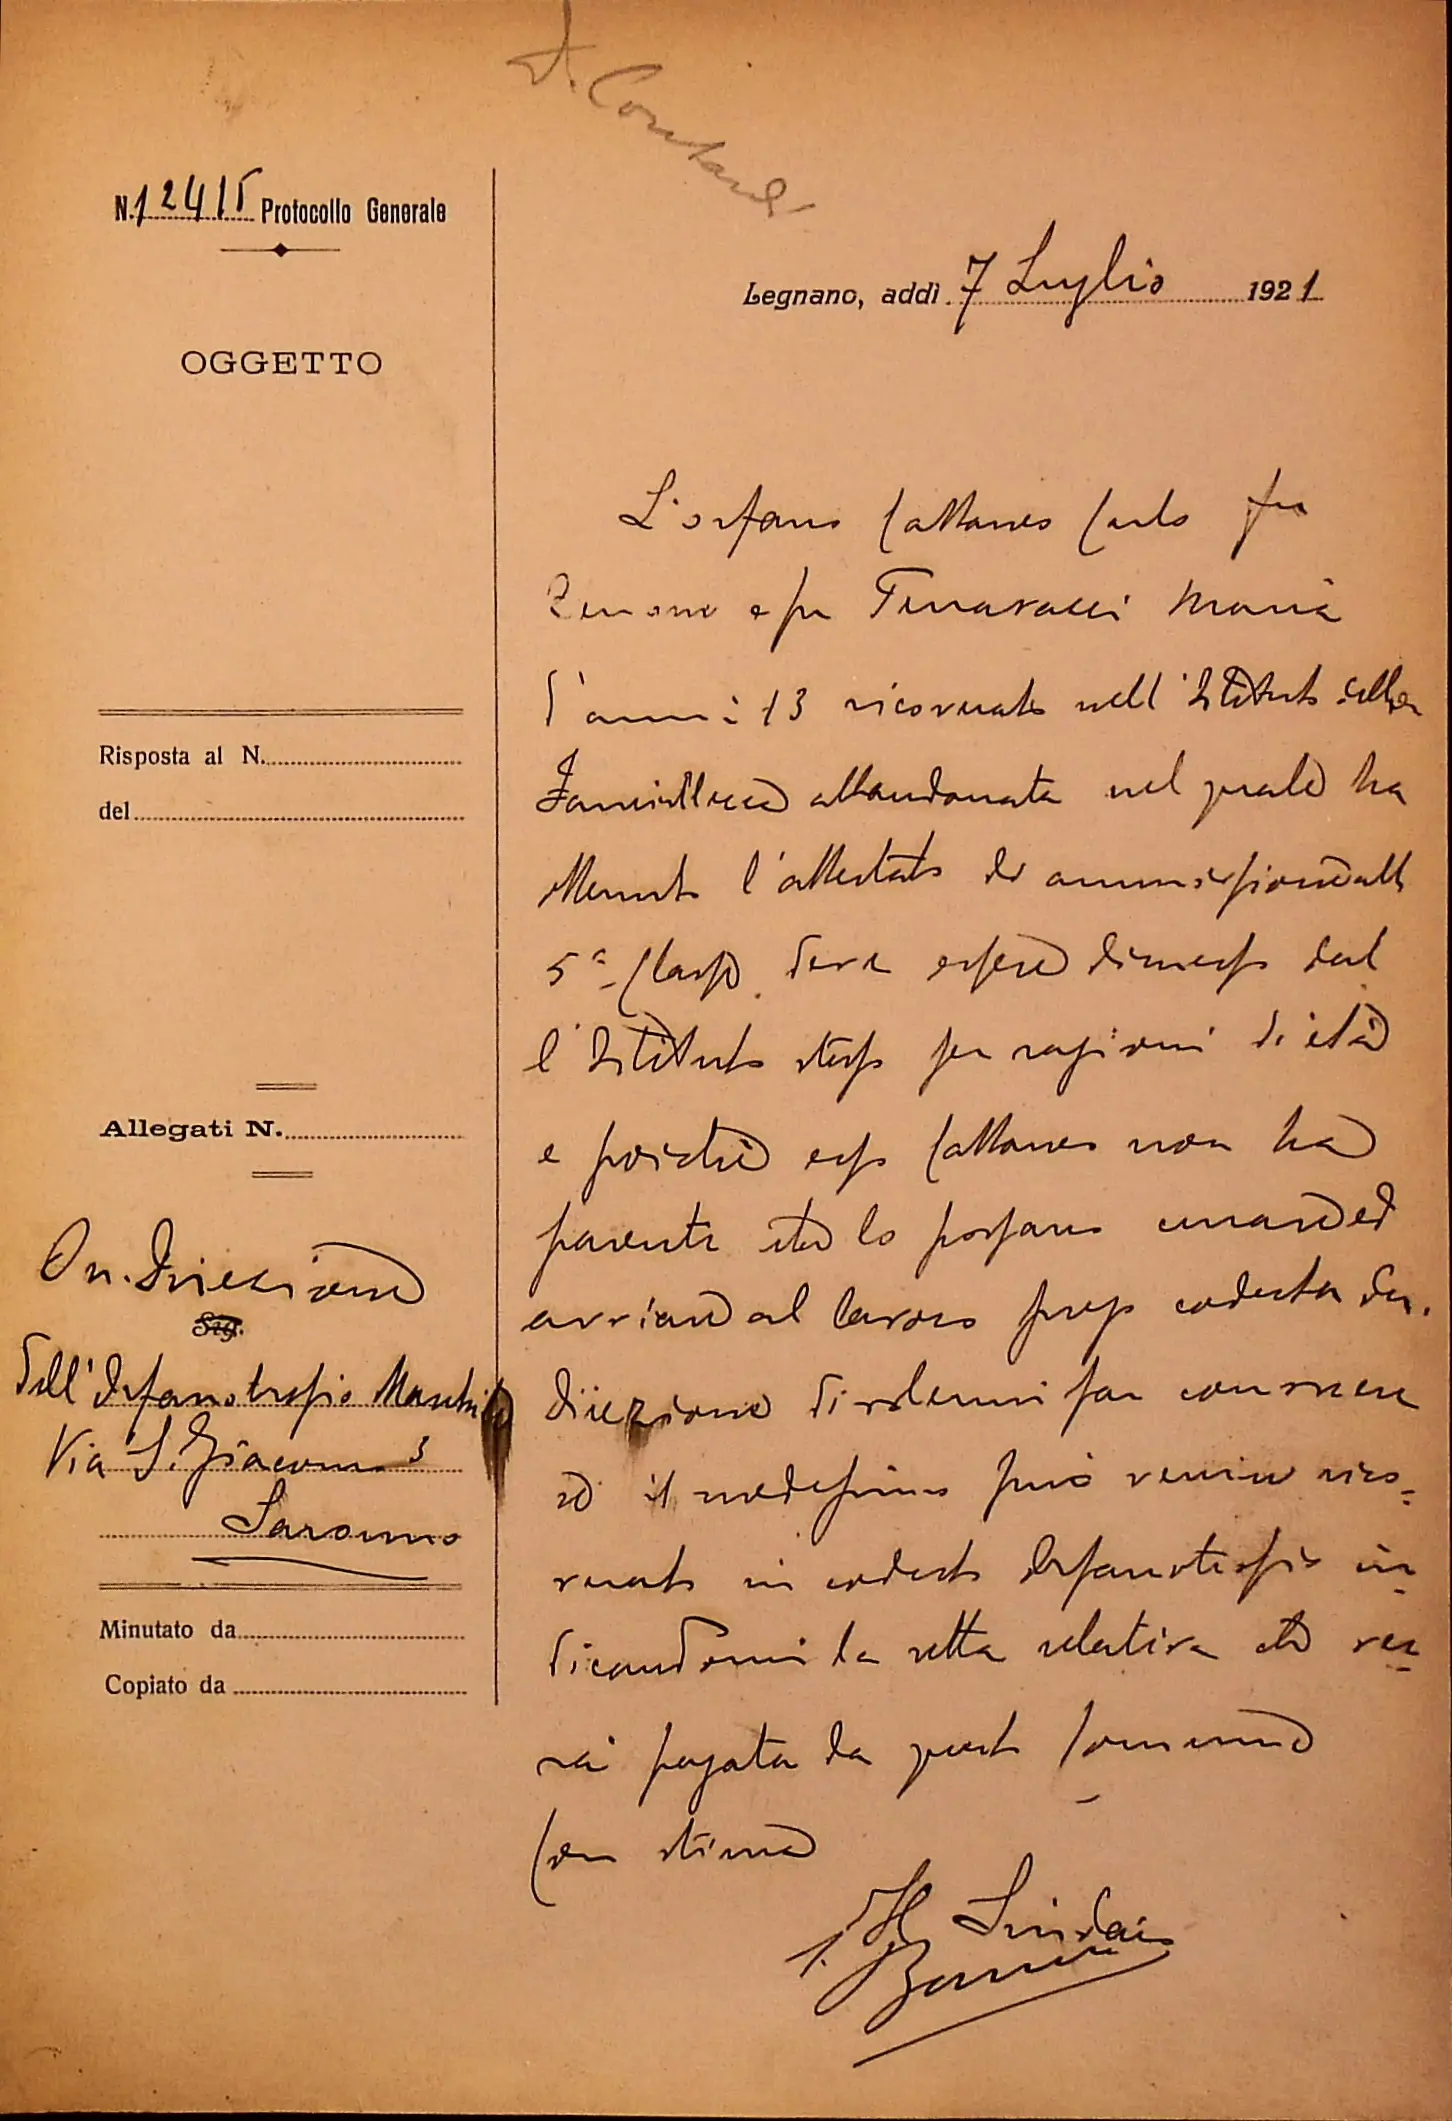 N. 12415 Protocollo Generale
Legnano, addì 7 Luglio 1921
OGGETTO
Risposta al N.
del
Allegati N.
On. Direzione
Sig.
dell'Orfanotrofio Maschile
Via S. Giacomo 3
Saronno
Minutato da
Copiato da
L'orfano Cattaneo Carlo fu
e fu Maria
d'anni 13 ricoverato nell'Istituto della
Fanciullezza abbandonata nel quale ha
ottenuto l'attestato di ammissione alla
5ª Classe deve essere dimesso dal
l'Istituto stesso per ragioni di età
e poichè esso Cattaneo non ha
parenti che lo possano ed
avviare al lavoro prego codesta On.
Direzione di volermi far conoscere
se il medesimo può venire rico=
verato in codesto Orfanotrofio in=
dicandomi la retta relativa che ver=
rà pagata da questo Comune
Con stima
Il Sindaco